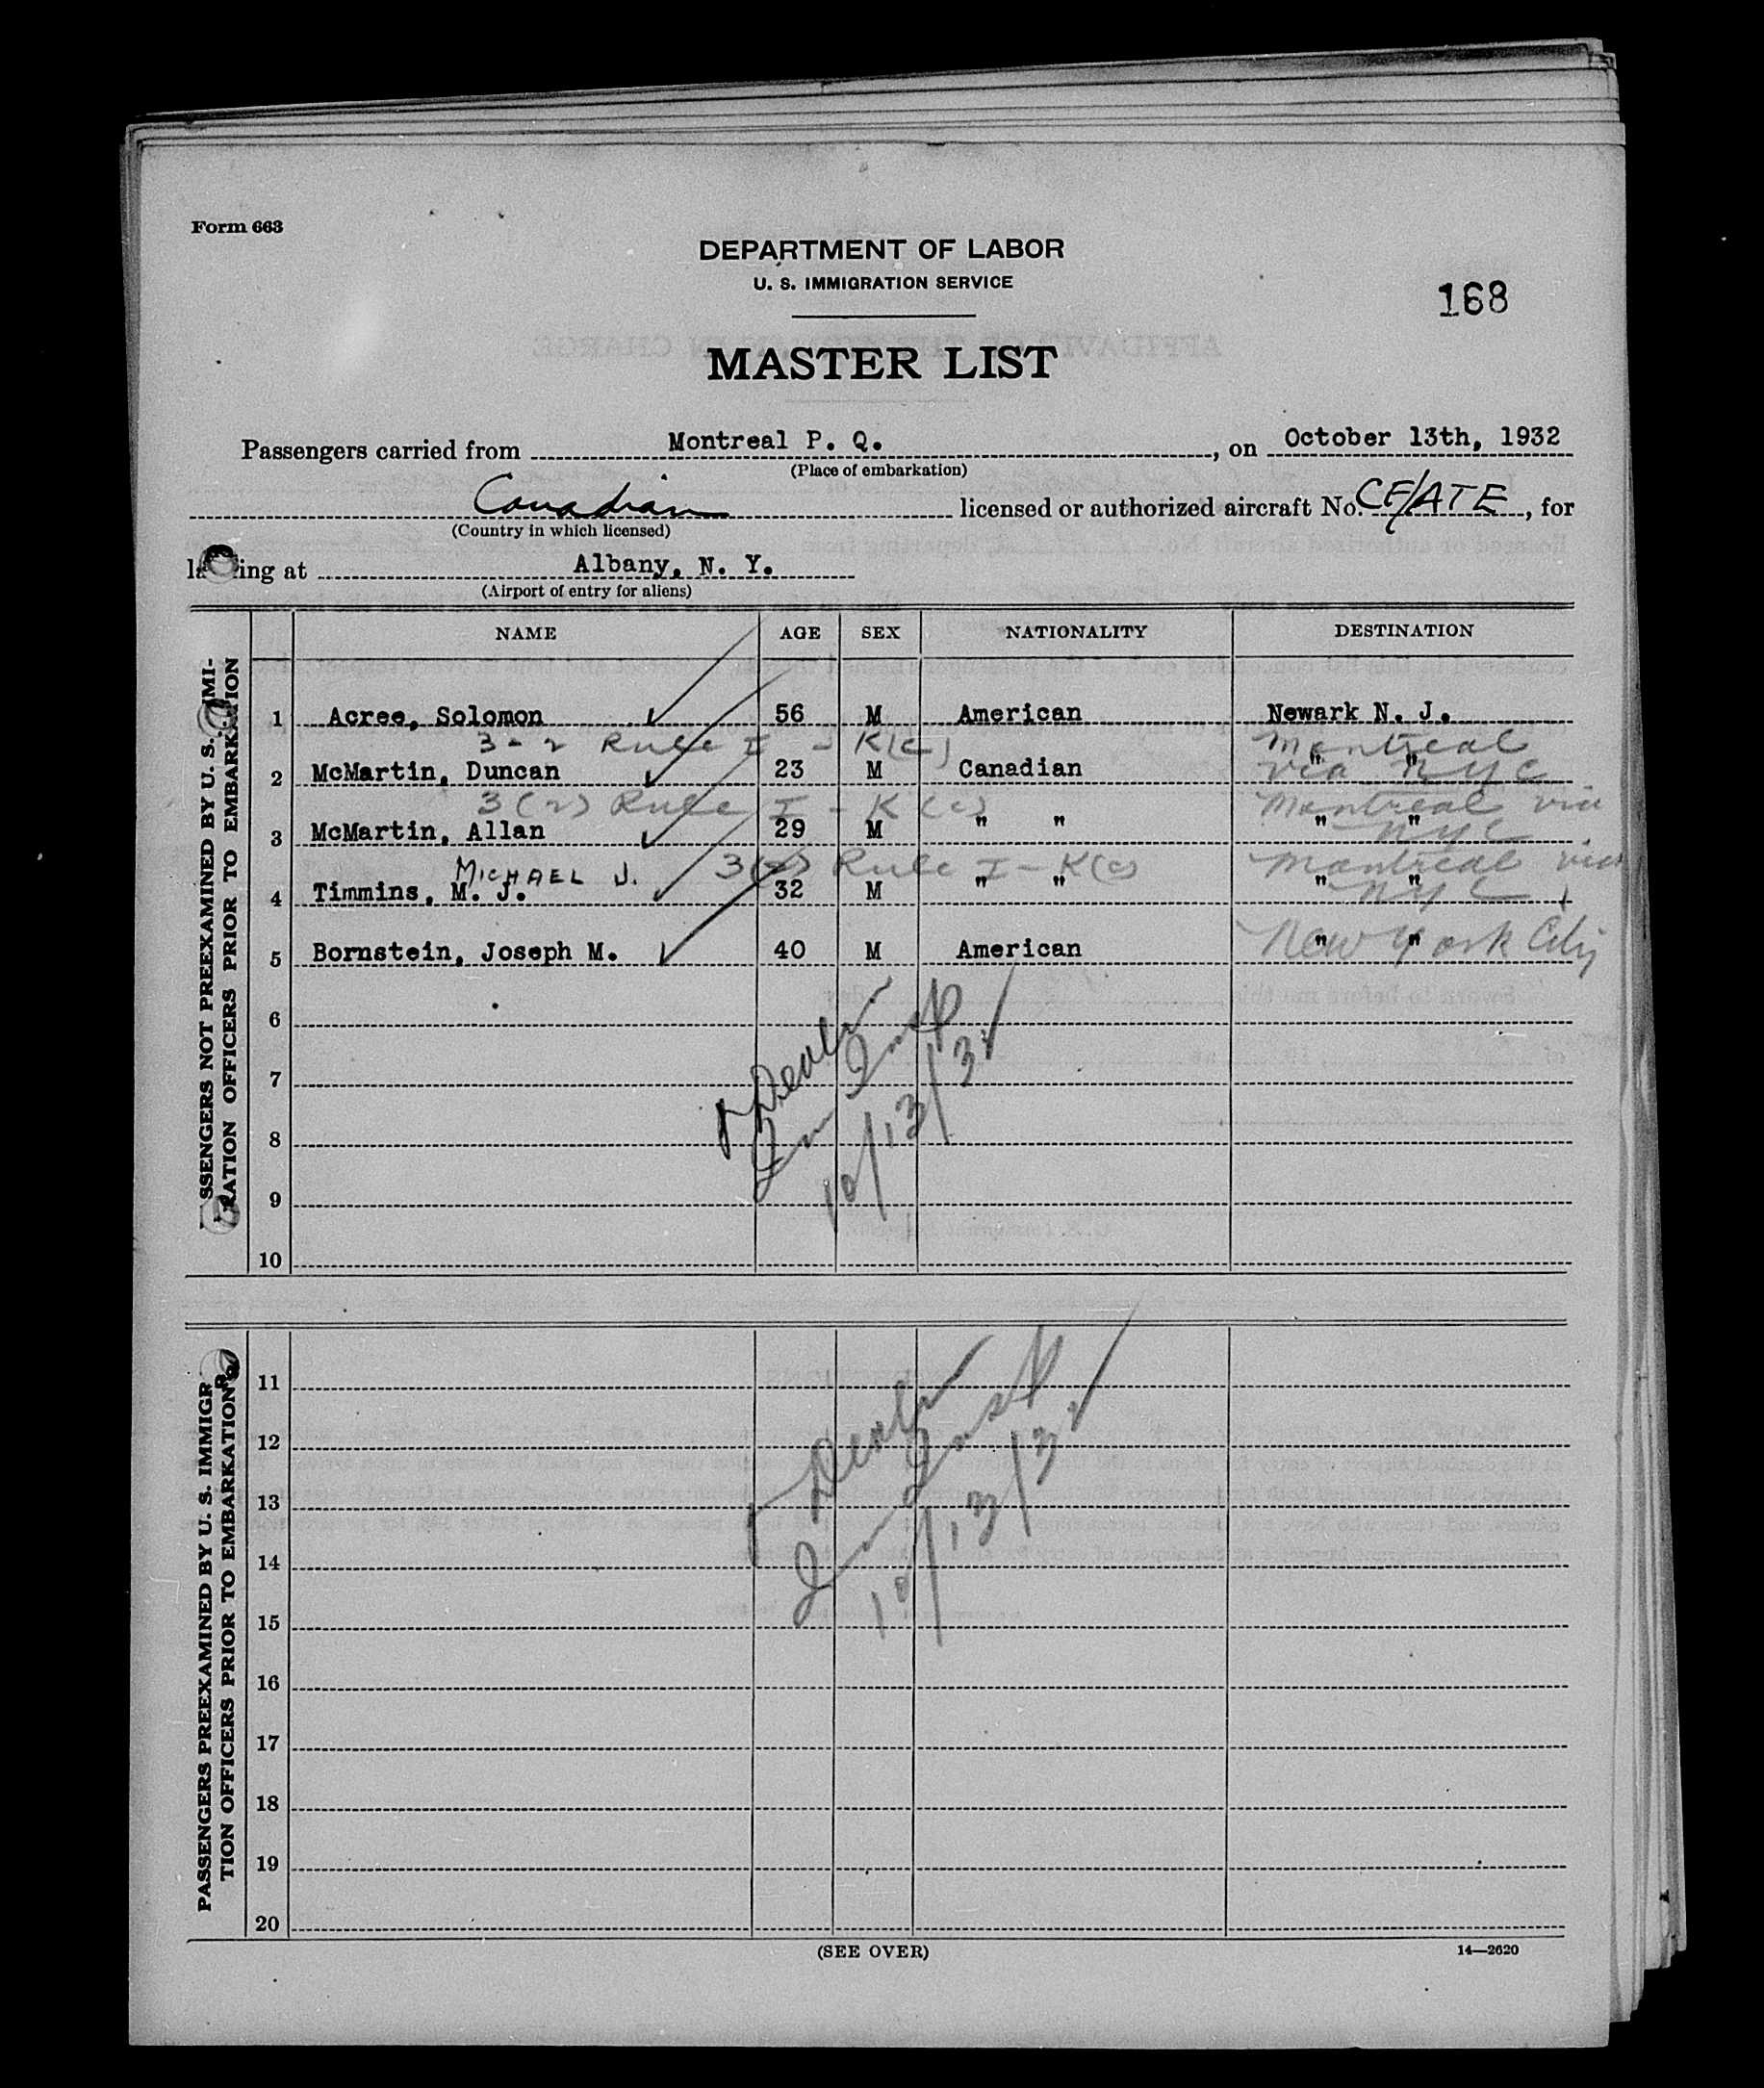 Form 663
DEPARTMENT OF LABOR
U. S. IMMIGRATION SERVICE
168
MASTER LIST
Passengers carried from Montreal P. Q., on October 13th, 1932
(Place of embarkation)
Canadian licensed or authorized aircraft No. CF/ATE, for
(Country in which licensed)
landing at Albany, N. Y.
(Airport of entry for aliens)
NAME AGE SEX NATIONALITY DESTINATION
SSENGERS NOT PREEXAMINED BY U. S. IMMI-
GRATION OFFICERS PRIOR TO EMBARKATION
1 Acree, Solomon 56 M American Newark N. J.
3-2 Rule I - K(c) Montreal
2 McMartin, Duncan 23 M Canadian " "
via NYC
3(2) Rule I - K(c) Montreal via
3 McMartin, Allan 29 M " " " "
NYC
MICHAEL J. 3(2) Rule I - K(c) Montreal via
4 Timmins, M. J. 32 M " " " "
NYC
5 Bornstein, Joseph M. 40 M American " "
New York City
6
7
8
9
10
Imm Insp
10/13/32
PASSENGERS PREEXAMINED BY U. S. IMMIGRA-
TION OFFICERS PRIOR TO EMBARKATION
11
12
13
14
15
16
17
18
19
20
Imm Insp
10/13/32
(SEE OVER)
14—2620